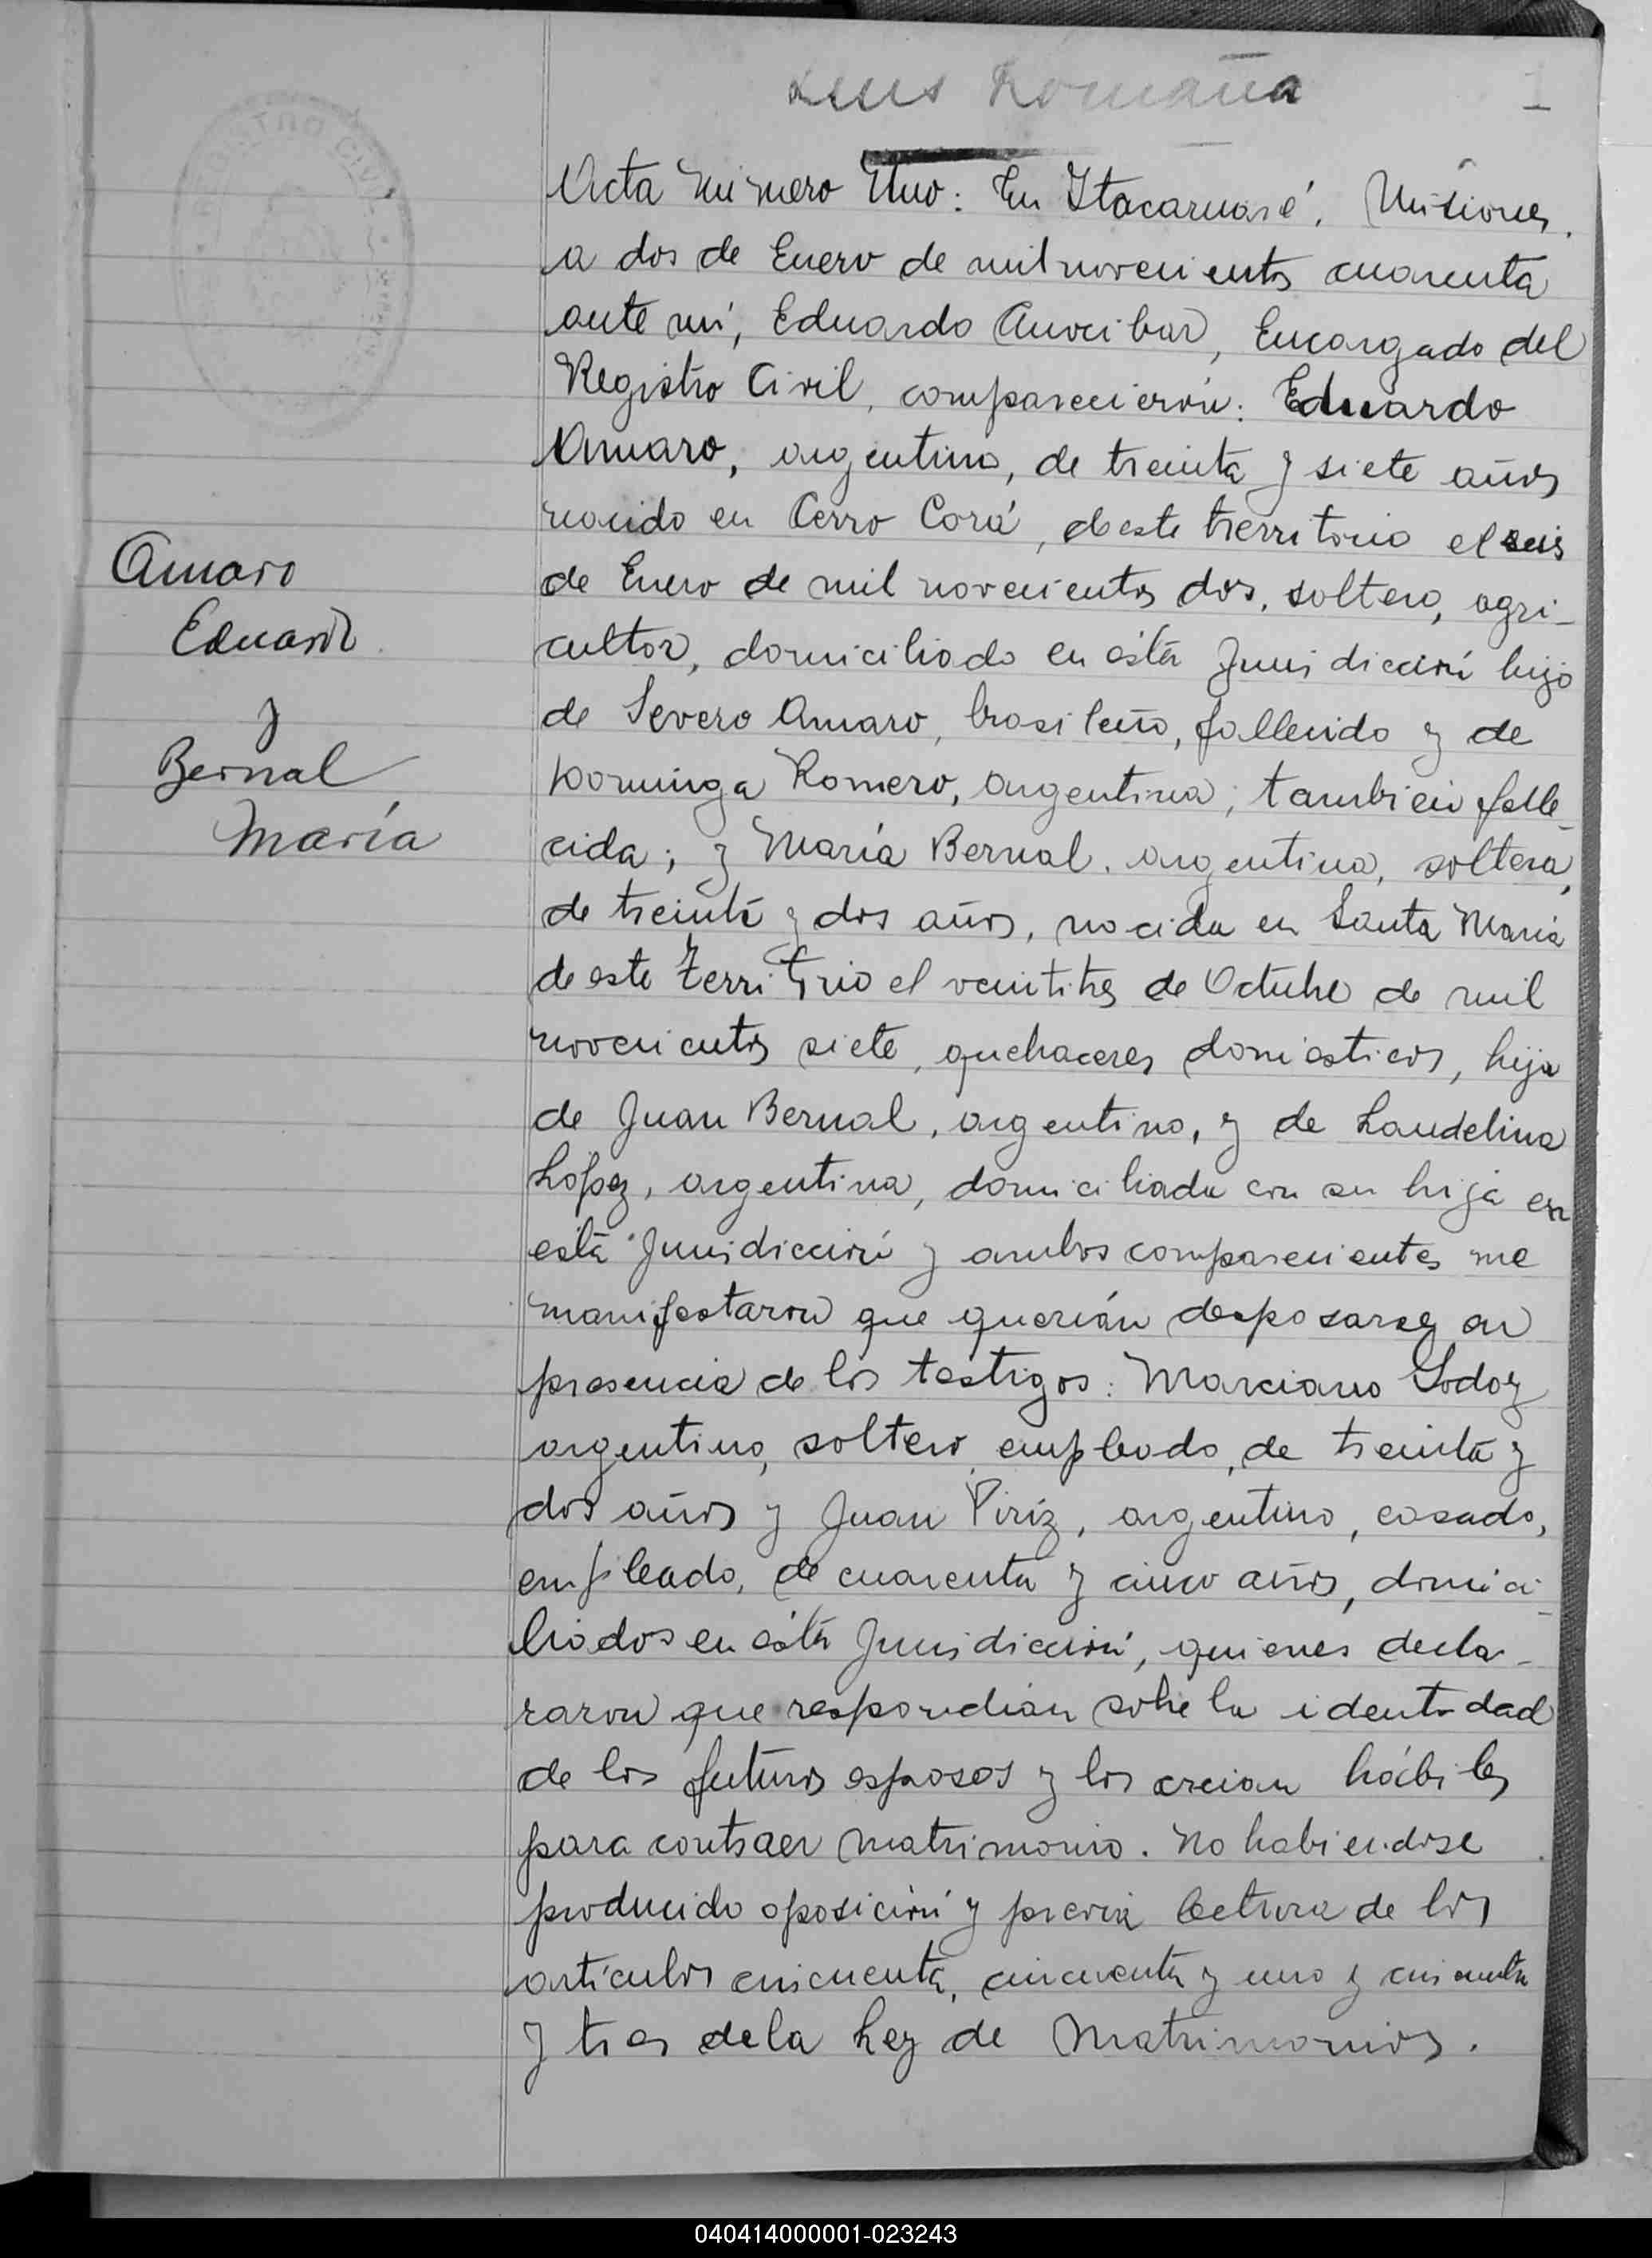 Luis Romaña
1
REGISTRO CIVIL
Acta número Uno: En Itacaruaré. Misiones.
a dos de Enero de mil novecientos cuarenta
ante mí, Eduardo Anocibar, Encargado del
Registro Civil, comparecieron: Eduardo
Amaro, argentino, de treinta y siete años
nacido en Cerro Corá, deeste territorio el seis
de Enero de mil novecientos dos, soltero, agri-
cultor, domiciliado en ésta Jurisdicción hijo
de Severo Amaro, brasileño, fallecido y de
Dominga Romero, argentina, también falle-
cida; y María Bernal, argentina, soltera,
de treinta y dos años, nacida en Santa María
de este Territorio el veintitres de Octubre de mil
novecientos siete, quehaceres domésticos, hija
de Juan Bernal, argentino, y de Laudelina
Lopez, argentina, domiciliada con su hija en
ésta Jurisdicción y ambos comparecientes me
manifestaron que querían desposarse en
presencia de los testigos: Marciano Godoy
argentino, soltero, empleado, de treinta y
dos años y Juan Piriz, argentino, casado,
empleado, de cuarenta y cinco años, domici-
liados en ésta Jurisdicción, quienes decla-
raron que respondían sobre la identidad
de los futuros esposos y los creian hábiles
para contraer matrimonio. No habiendose
producido oposición y previa lectura de los
artículos cincuenta, cincuenta y uno y cincuenta
y tres dela Ley de Matrimonios.
Amaro
Eduardo
y
Bernal
María
040414000001-023243